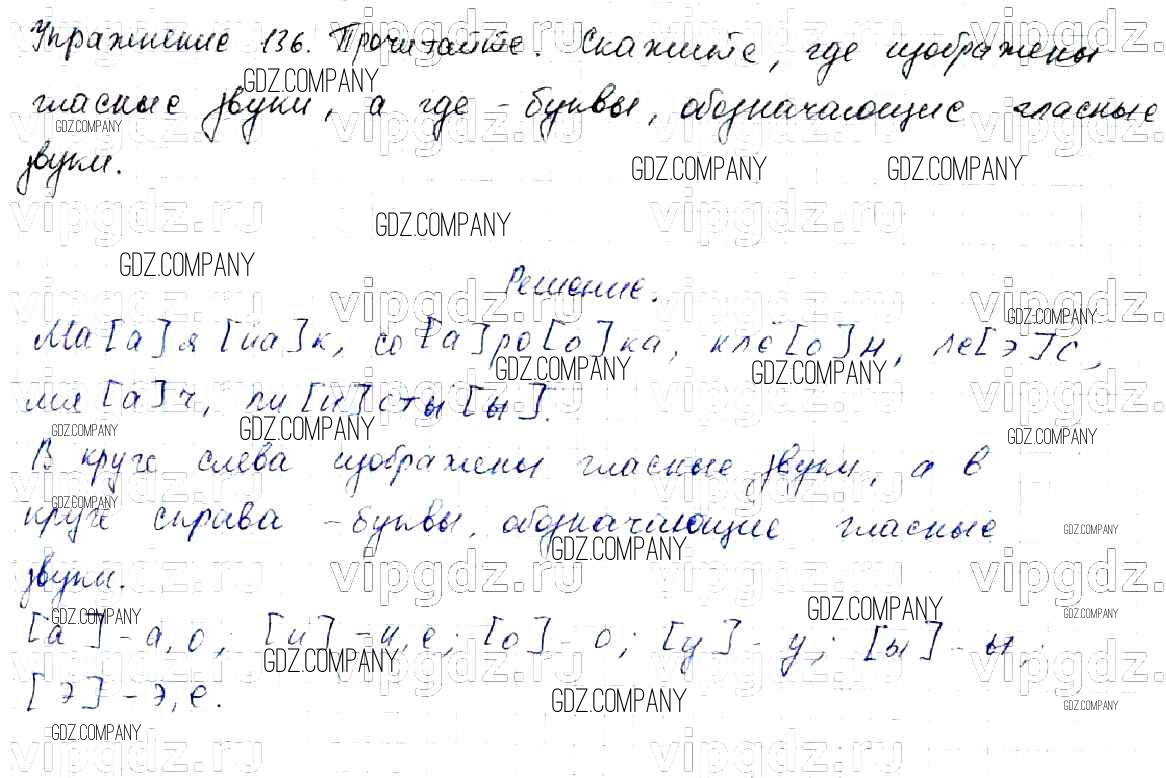 Упражнение 136. Прочитайте. Скажите, где изображены
гласные звуки, а где - буквы, обозначающие гласные
звуки.
Решение.
Ма[а]я[йа]к, со[а]ро[о]ка, клё[о]н, ле[э]с,
мя[а]ч, ли[и]сты[ы].
В круге слева изображены гласные звуки, а в
круге справа - буквы, обозначающие гласные
звуки.
[а] - а, о; [и] - и, е; [о] - о; [у] - у; [ы] - ы;
[э] - э, е.
vipgdz.ru
GDZ.COMPANY